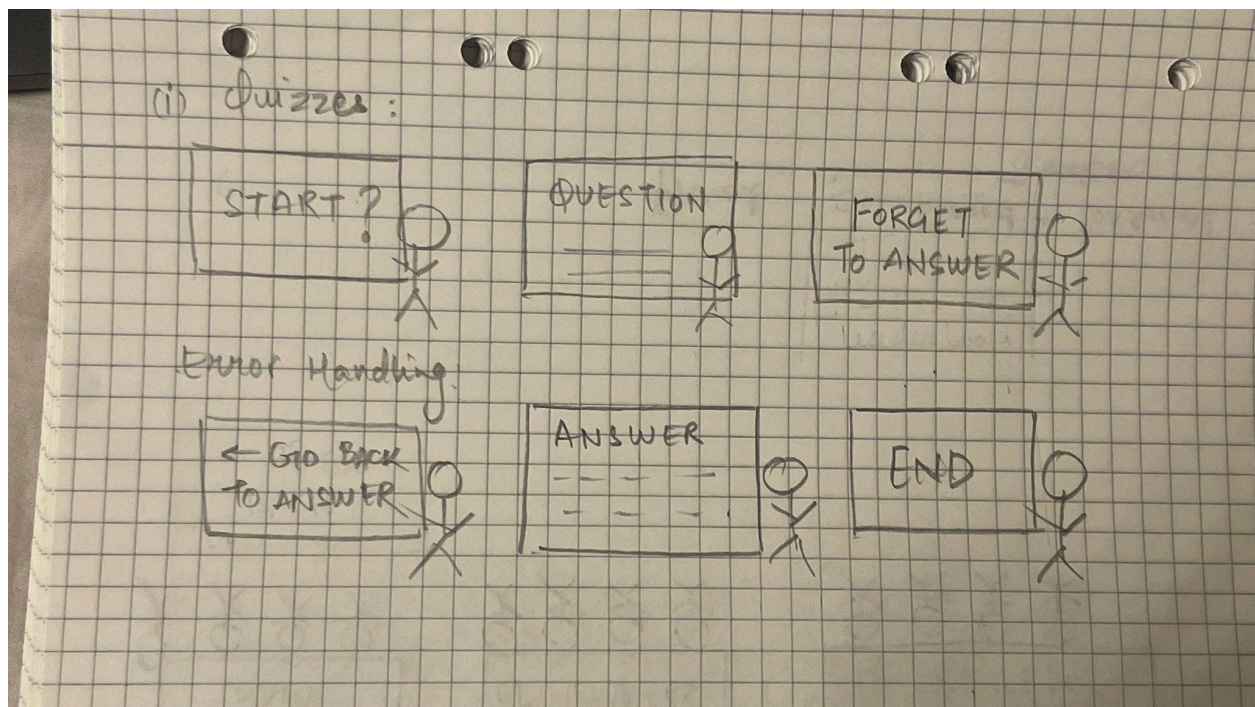 (i) Quizzes:
START?
QUESTION
FORGET
TO ANSWER
Error Handling
← GO BACK
TO ANSWER
ANSWER
END